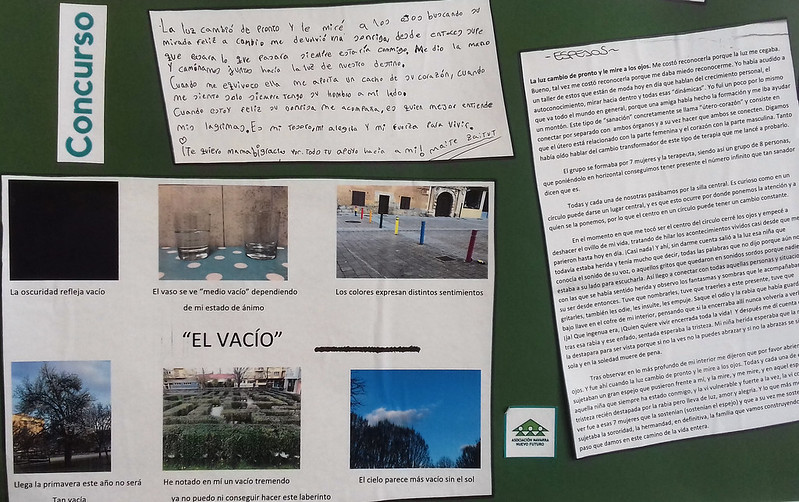 Concurso
La luz cambió de pronto y le miré a los ojos buscando su
mirada feliz a cambio me devolvió una sonrisa, desde entonces supe
que pasara lo que pasara siempre estaría conmigo. Me dio la mano
y caminamos juntos hacia la luz de nuestro destino.
Cuando me equivoco ella me aporta un cacho de su corazón, cuando
me siento solo siempre tengo su hombro a mi lado.
Cuando estoy feliz su sonrisa me acompaña, es quien mejor entiende
mis lagrimas. Es mi tesoro, mi alegria y mi fuerza para vivir.
¡Te quiero mama! ¡gracias por todo tu apoyo hacia a mi!
La oscuridad refleja vacío
El vaso se ve “medio vacío” dependiendo
de mi estado de ánimo
Los colores expresan distintos sentimientos
“EL VACÍO”
Llega la primavera este año no será
Tan vacía
He notado en mí un vacío tremendo
ya no puedo ni conseguir hacer este laberinto
El cielo parece más vacío sin el sol
ESPEJOS
La luz cambio de pronto y le mire a los ojos. Me costó reconocerla porque la luz me cegaba.
Bueno, tal vez me costó reconocerla porque me daba miedo reconocerme. Yo había acudido a
un taller de estos que están de moda hoy en día que hablan del crecimiento personal, el
autoconocimiento, mirar hacia dentro y todas estas “dinámicas”. Yo fui un poco por lo mismo
que va todo el mundo en general, porque una amiga hecho la formación y me ayudaría
un montón. Este tipo de “sanación” concretamente se llama “útero-corazón” y consiste en
conectar por separado con ambos órganos y a su vez hacer que ambos se conecten. Digamos
que el útero está relacionado con la parte femenina y el corazón con la parte masculina. Tanto
había oído hablar del cambio transformador de este tipo de terapia que me lancé a probarlo.
El grupo se formaba por 7 mujeres y la terapeuta, siendo así un grupo de 8 personas,
que poniéndolo en horizontal conseguimos tener presente el número infinito que tan sanador
dicen que es.
Todas y cada una de nosotras pasábamos por la silla central. Es curioso como en un
círculo puede darse un lugar central, y es que esto ocurre por donde ponemos la atención y a
quien se la ponemos, por lo que el centro en un círculo puede tener un cambio constante.
En el momento en que me tocó ser el centro del círculo cerré los ojos y empecé a
deshacer el ovillo de mi vida, tratando de hilar los acontecimientos vividos casi desde que me
parieron hasta hoy en día. ¡Casi nada! Y ahí, sin darme cuenta salió a la luz esa niña que
todavía estaba herida y tenía mucho que decir, todas las palabras que no dijo porque aún no
conocía el sonido de su voz, o aquellos gritos que quedaron en sonidos sordos porque nadie
estaba a su lado para escucharla. Así llego a conectar con todas aquellas personas y
con las que se había sentido herida y observo los fantasmas y sombras que le acompañaban
su ser desde entonces. Tuve que nombrarles, tuve que traerles a este presente, tuve que
gritarles, también les odie, les insulte, les empuje. Saque el odio y la rabia que había
bajo llave en el cofre de mi interior, pensando que si la encerraba allí nunca volvería a
¡Ja! Que ingenua era, ¡Quien quiere vivir encerrada toda la vida! Y después me di cuenta
tras esa rabia y ese enfado, sentada esperaba la tristeza. Mi niña herida esperaba que la
la destapara para ser vista porque si no la ves no la puedes abrazar y si no la abrazas se
sola y en la soledad muere de pena.
Tras observar en lo más profundo de mi interior me dijeron que por favor
ojos. Y fue ahí cuando la luz cambio de pronto y le mire a los ojos. Todas y cada una de
sujetaban un gran espejo que pusieron frente a mí, y la mire, y me mire, y en aquel
aquella niña que siempre ha estado conmigo, y la vi vulnerable y fuerte a la vez, la vi
tristeza recién destapada por la rabia pero lleva de luz, amor y alegría. Y lo que más
ver fue a esas 7 mujeres que la sostenían (sostenían el espejo) y que a su vez me
sujetaba la sororidad, la hermandad, en definitiva, la familia que vamos construyendo
paso que damos en este camino de la vida entera.
ASOCIACIÓN NAVARRA
NUEVO FUTURO